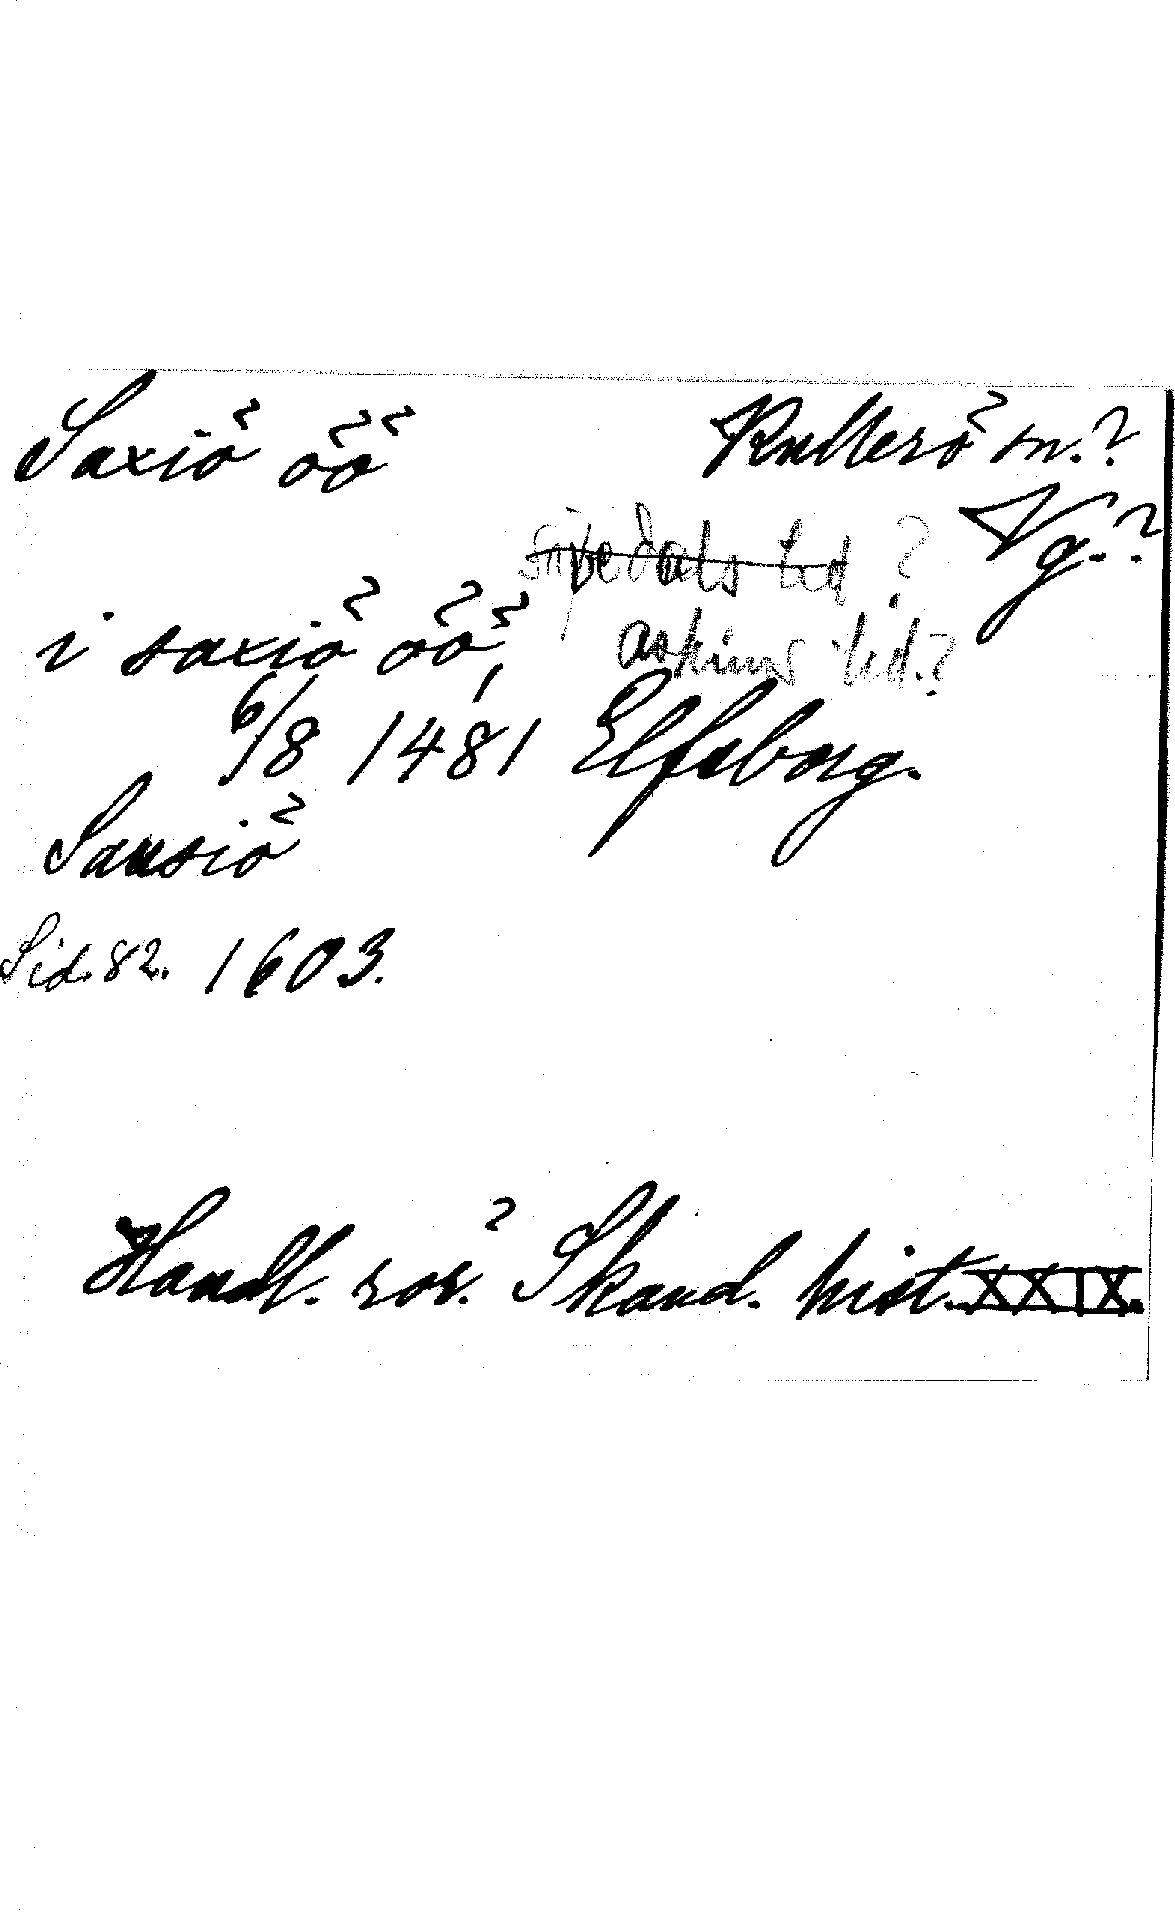 Saxiö öö Kullerö sn.?
Vg.?
i saxiö öö, askims hd.?
6/8 1481 Elfsborg.
Sausiö
Sid. 82. 1603.
Handl. rör. Skand. hist. XXIX.